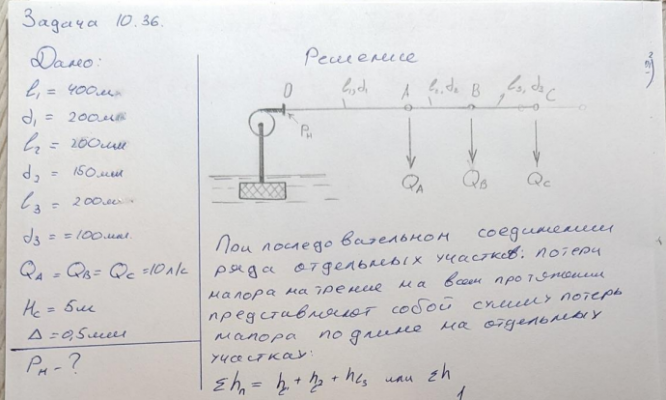 Задача 10.36.
Дано:
l₁ = 400м
d₁ = 200мм
l₂ = 200мм
d₂ = 150мм
l₃ = 200м
d₃ = =100мм.
Q_A = Q_B = Q_C = 10 л/с
H_C = 5м
Δ = 0,5мм
P_н - ?
Решение
O l₁, d₁ A l₂, d₂ B l₃, d₃ C
P_н
Q_A Q_B Q_C
При последовательном соединении
ряда отдельных участков: потери
напора на трение на всем протяжении
представляют собой сумму потерь
напора по длине на отдельных
участках:
Σhп = h₁ + h₂ + h_l₃ или Σh
1